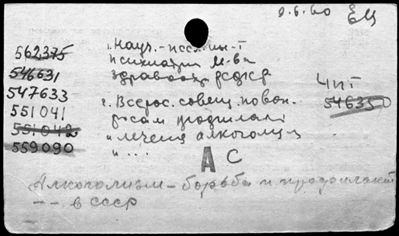 9.6.60 ЕЦ
562375
546631
547633
551041
551042
559090
1. Науч.-иссл. ин-т
психиатрии М-ва
здравоохр. РСФСР
2. Всерос. совещ. по воп-
росам профилакт.
и лечения алкоголизма
Чит
54635
АС
Алкоголизм – борьба и профилакт
– – в СССР